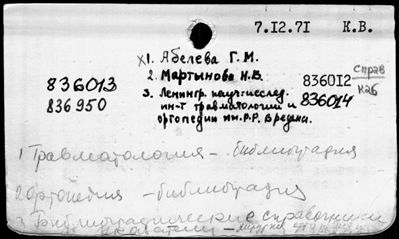 7.12.71 К.В.
х1. Абелева Г.М.
2. Мартынова Н.В.
836013
836012
Справ
836950
3. Ленингр. науч.-исслед.
836014
каб
ин-т травматологии и
ортопедии им. Р.Р. Вредена.
1 Травматология - библиография
2 Ортопедия - библиография
3 Библиографические справочники
указатели -